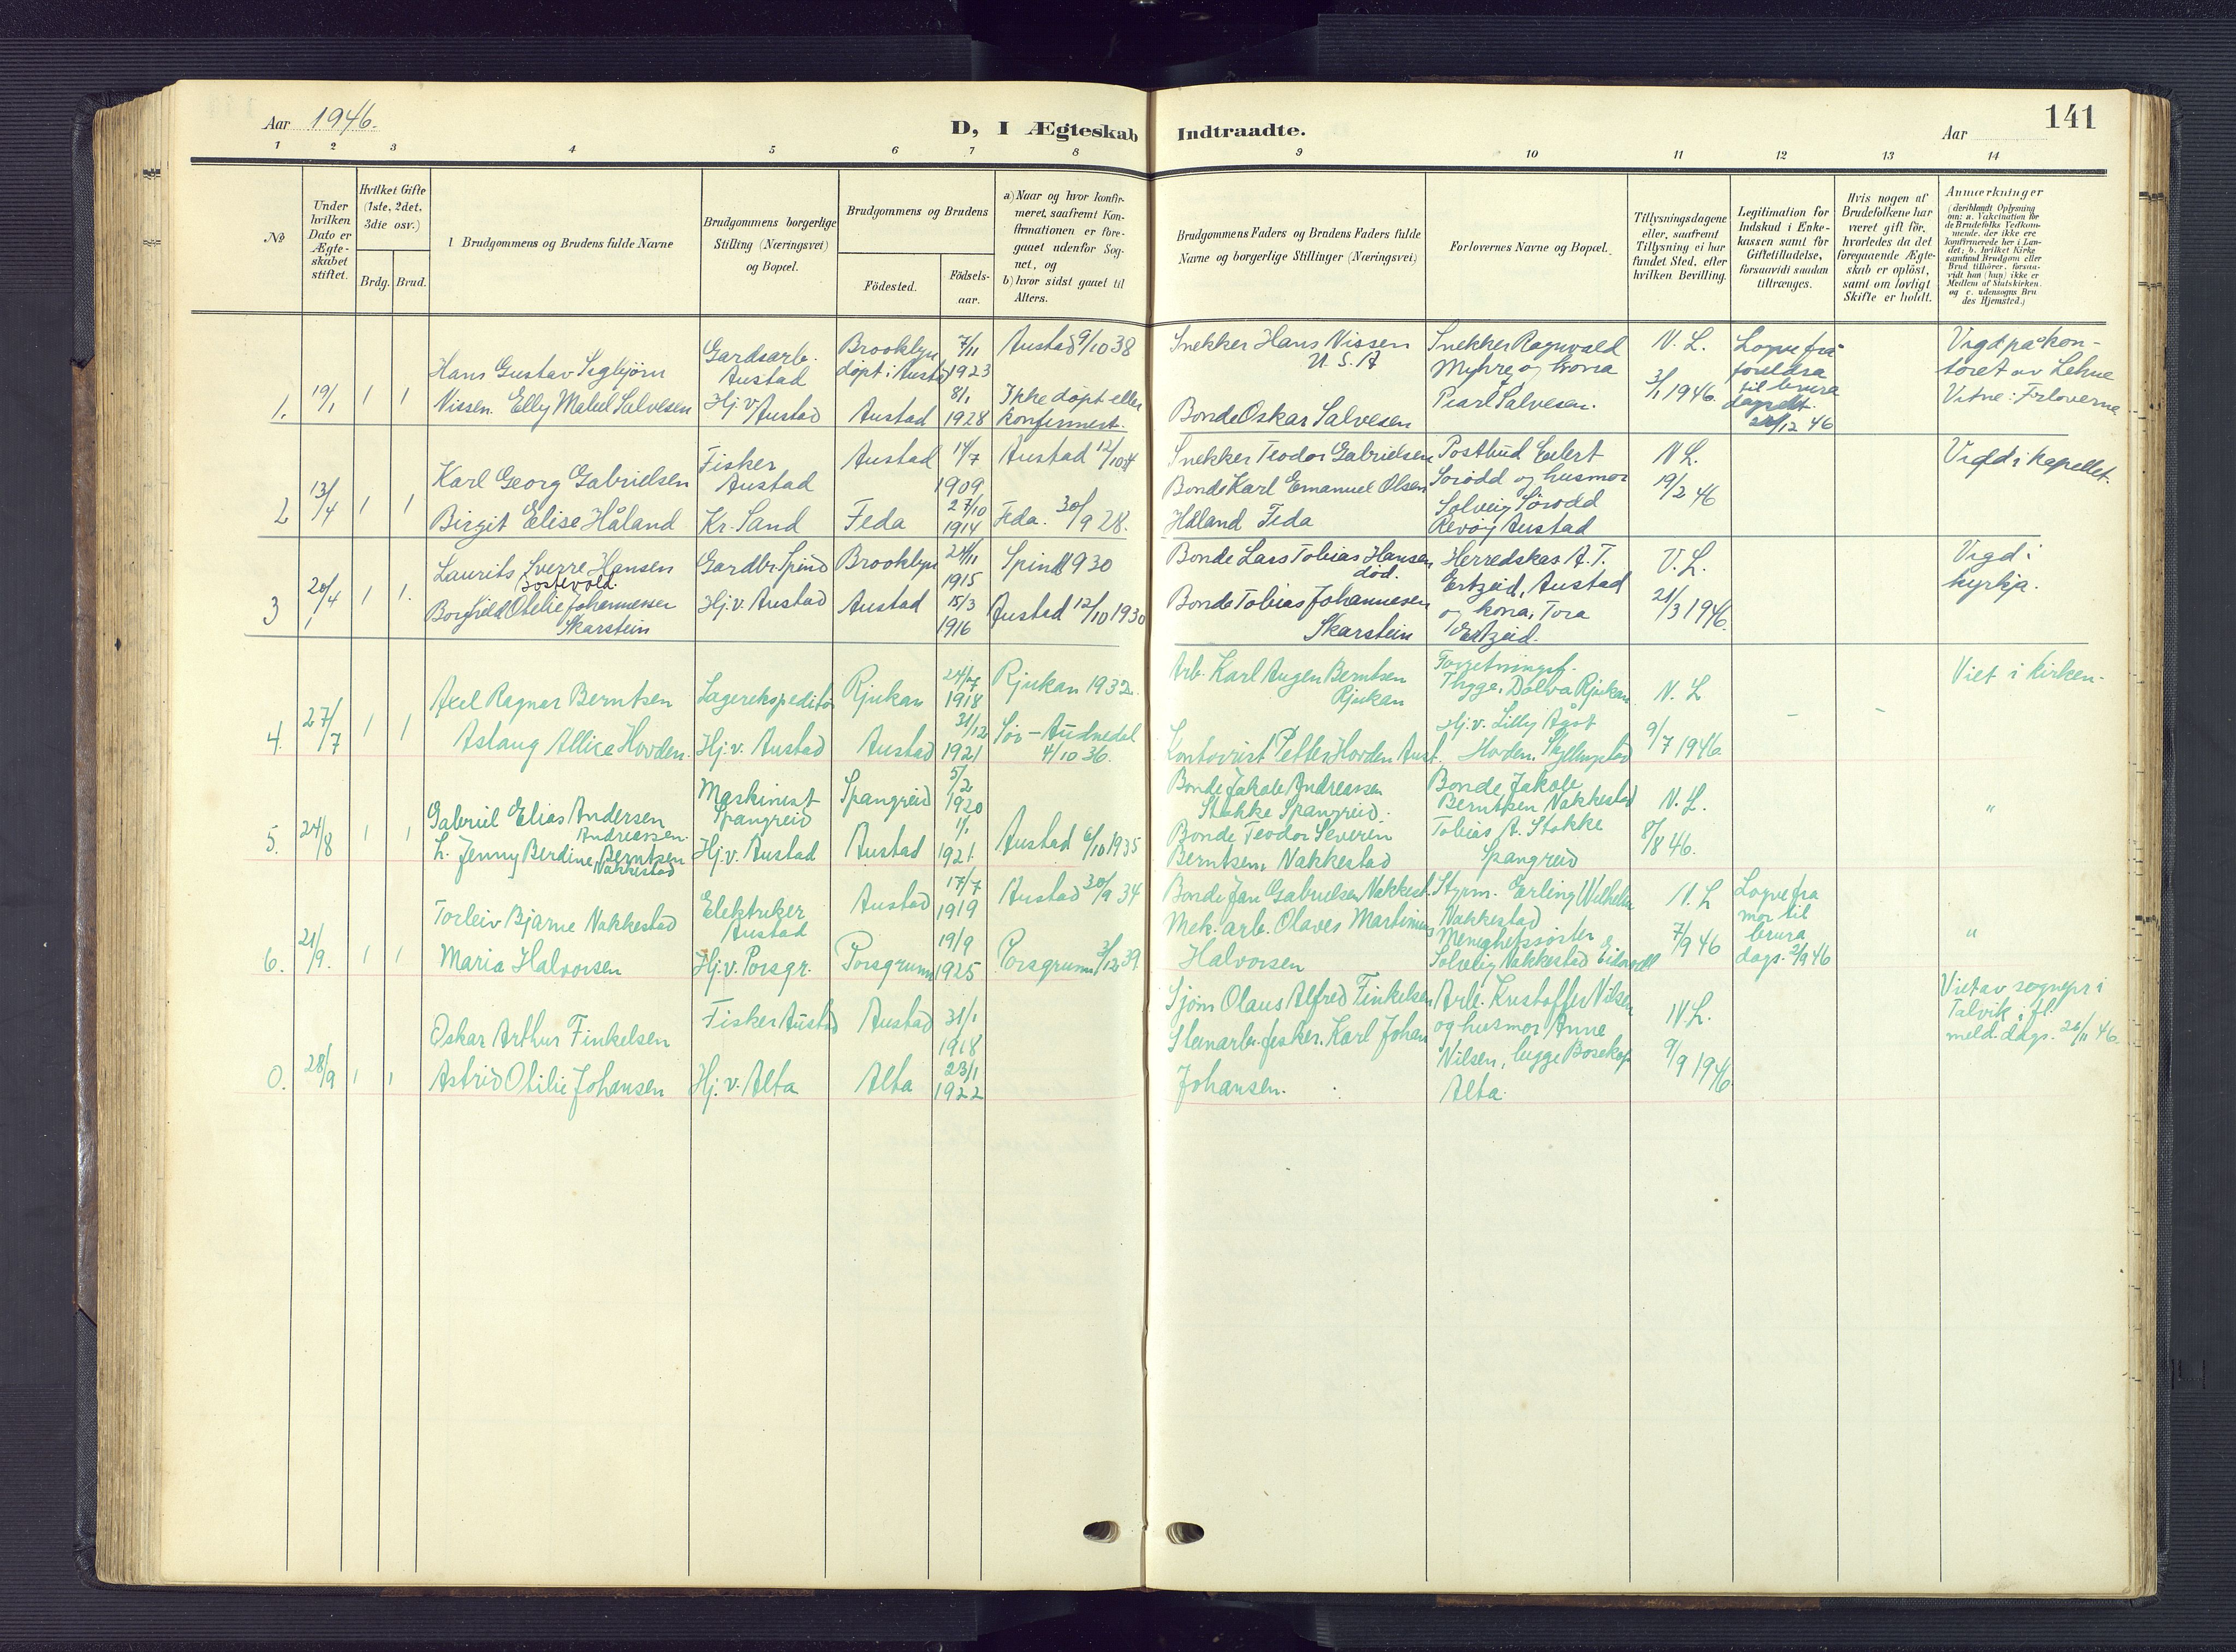 Aar 1946.
D, I Ægteskab Indtraadte.
Aar
141
1 2 3 4 5 6 7 8 9 10 11 12 13 14
No
Under hvilken Dato er Ægteskabet stiftet.
Hvilket Gifte (1ste, 2det, 3die osv.)
Brdg. Brud.
1 Brudgommens og Brudens fulde Navne
Brudgommens borgerlige Stilling (Næringsvei) og Bopæl.
Brudgommens og Brudens
Födested.
Födselsaar.
a) Naar og hvor konfirmeret, saafremt Konfirmationen er foregaaet udenfor Sognet, og
b) hvor sidst gaaet til Alters.
Brudgommens Faders og Brudens Faders fulde Navne og borgerlige Stillinger (Næringsvei)
Forlovernes Navne og Bopæl.
Tillysningsdagene eller, saafremt Tillysning ei har fundet Sted, efter hvilken Bevilling.
Legitimation for Indskud i Enkekassen samt for Giftetilladelse, forsaavidt saadan tiltrænges.
Hvis nogen af Brudefolkene har været gift för, hvorledes da det foregaaende Ægteskab er oplöst, samt om lovligt Skifte er holdt.
Anmærkninger
(deriblandt Oplysning om: a. Vakcination for de Brudefolks Vedkommende, der ikke ere konfirmerede her i Landet; b. hvilket Kirkesamfund Brudgom eller Brud tilhörer, forsaavidt han (hun) ikke er Medlem af Statskirken, og c. udensogns Brudes Hjemsted.)
1. 19/1 1 1
Hans Gustav Sigbjörn
Nissen. Elly Mabel Salvesen
Gardsarb.
Austad
Hj. v. Austad
Brooklyn
döpt i Austad
Austad
7/11
1923
8/1
1928
Austad 9/10 38
Ikke döpt eller
konfirmert.
Snekker Hans Nissen
U. S. A
Bonde Oskar Salvesen
Snekker Ragnvald
Myhre og kona
Pearl Salvesen.
N. L.
3/1 1946.
Lovve frå
foreldra
til brura
12 46
Vigd på kon-
toret av Lehne
Vitne: Forloverne
2 13/4 1 1
Karl Georg Gabrielsen
Birgit Elise Håland
Fisker
Austad
Kr. Sand
Austad
Feda
14/7
1909
27/10
1914
Austad 12/10
Feda. 30/9 28.
Snekker Teodor Gabrielsen
Bonde Karl Emanuel Olsen
Håland Feda
Postbud Eilert
Sörödd og husmor
Solveig Sörödd
Revöy Austad
N L.
19/2 46
Vigd i kapellet.
3 20/4 1 1.
Laurits Sverre Hansen
Borghild Otelie Johannesen
Skarstein
Gardbr. Spind
Hj. v. Austad
Brooklyn
Austad
24/11
1915
15/3
1916
Spind 1930
Austad 12/10 1930
Bonde Lars Tobias Hansen
död.
Bonde Tobias Johannesen
Skarstein
Herredskas. A. T.
Ertzeid, Austad
og kona, Tora
Ertzeid.
V. L.
21/3 1946.
Vigd i
kyrkja.
4. 27/7 1 1
Axel Ragnar Berntsen
Aslaug Allice Horden.
Lagerekspeditör
Hj. v. Austad
Rjukan
Austad
24/7
1918
31/12
1921
Rjukan 1932.
Sör-Audnedal
4/10 36.
Arb. Karl Augen Berntsen
Rjukan
Kontorist Petter Horden Aust.
Forretningsf.
Thygge, Dalva Rjukan
Hj. v. Lilly Ågot
Horden,
N. L
9/7 1946.
Viet i kirken.
5. 24/8 1 1
Gabriel Elias Andersen
Andreassen
L. Jenny Berdine Berntsen
Nakkestad
Maskinist
Spangreid
Hj. v. Austad
Spangreid
Austad
5/2
1920
1/1
1921
Austad 6/10 1935
Bonde Jakob Andreassen
Stokke Spangreid.
Bonde Teodor Severin
Berntsen, Nakkestad
Bonde Jakob
Berntsen Nakkestad
Tobias A. Stokke
Spangreid
N. L.
8/8 46.
"
6. 21/9. 1 1
Torleiv Bjarne Nakkestad
Maria Halvorsen
Elektriker
Austad
Hj. v. Porsgr.
Austad
Porsgrunn
17/7
1919
19/9
1925
Austad 30/9 34
Porsgrunn 3/12 39
Bonde Jan Gabrielsen Nakkest.
Mek. arb. Olaves Martinius
Halvorsen
Styrm. Erling Wilhelm
Nakkestad
Menighetssöster
Solveig Nakkestad Eidsvoll
N. L
7/9 46
Lovve fra
mor til
brura
dags. 2/9 46
"
0. 28/9 1 1
Oskar Arthur Finkelsen
Astrid Otilie Johansen
Fisker Austad
Hj. v. Alta
Austad
Alta
31/1
1918
23/1
1922
Sjöm. Olaus Alfred Finkelsen
Steinarb. fisker. Karl Johan
Johansen.
Arb. Kristoffer Nilsen
og husmor Anne
Nilsen, begge Bosekop
Alta.
N. L.
9/9 1946
Viet av sognepr i
Talvik, fl.
meld. dags. 26/11 46.